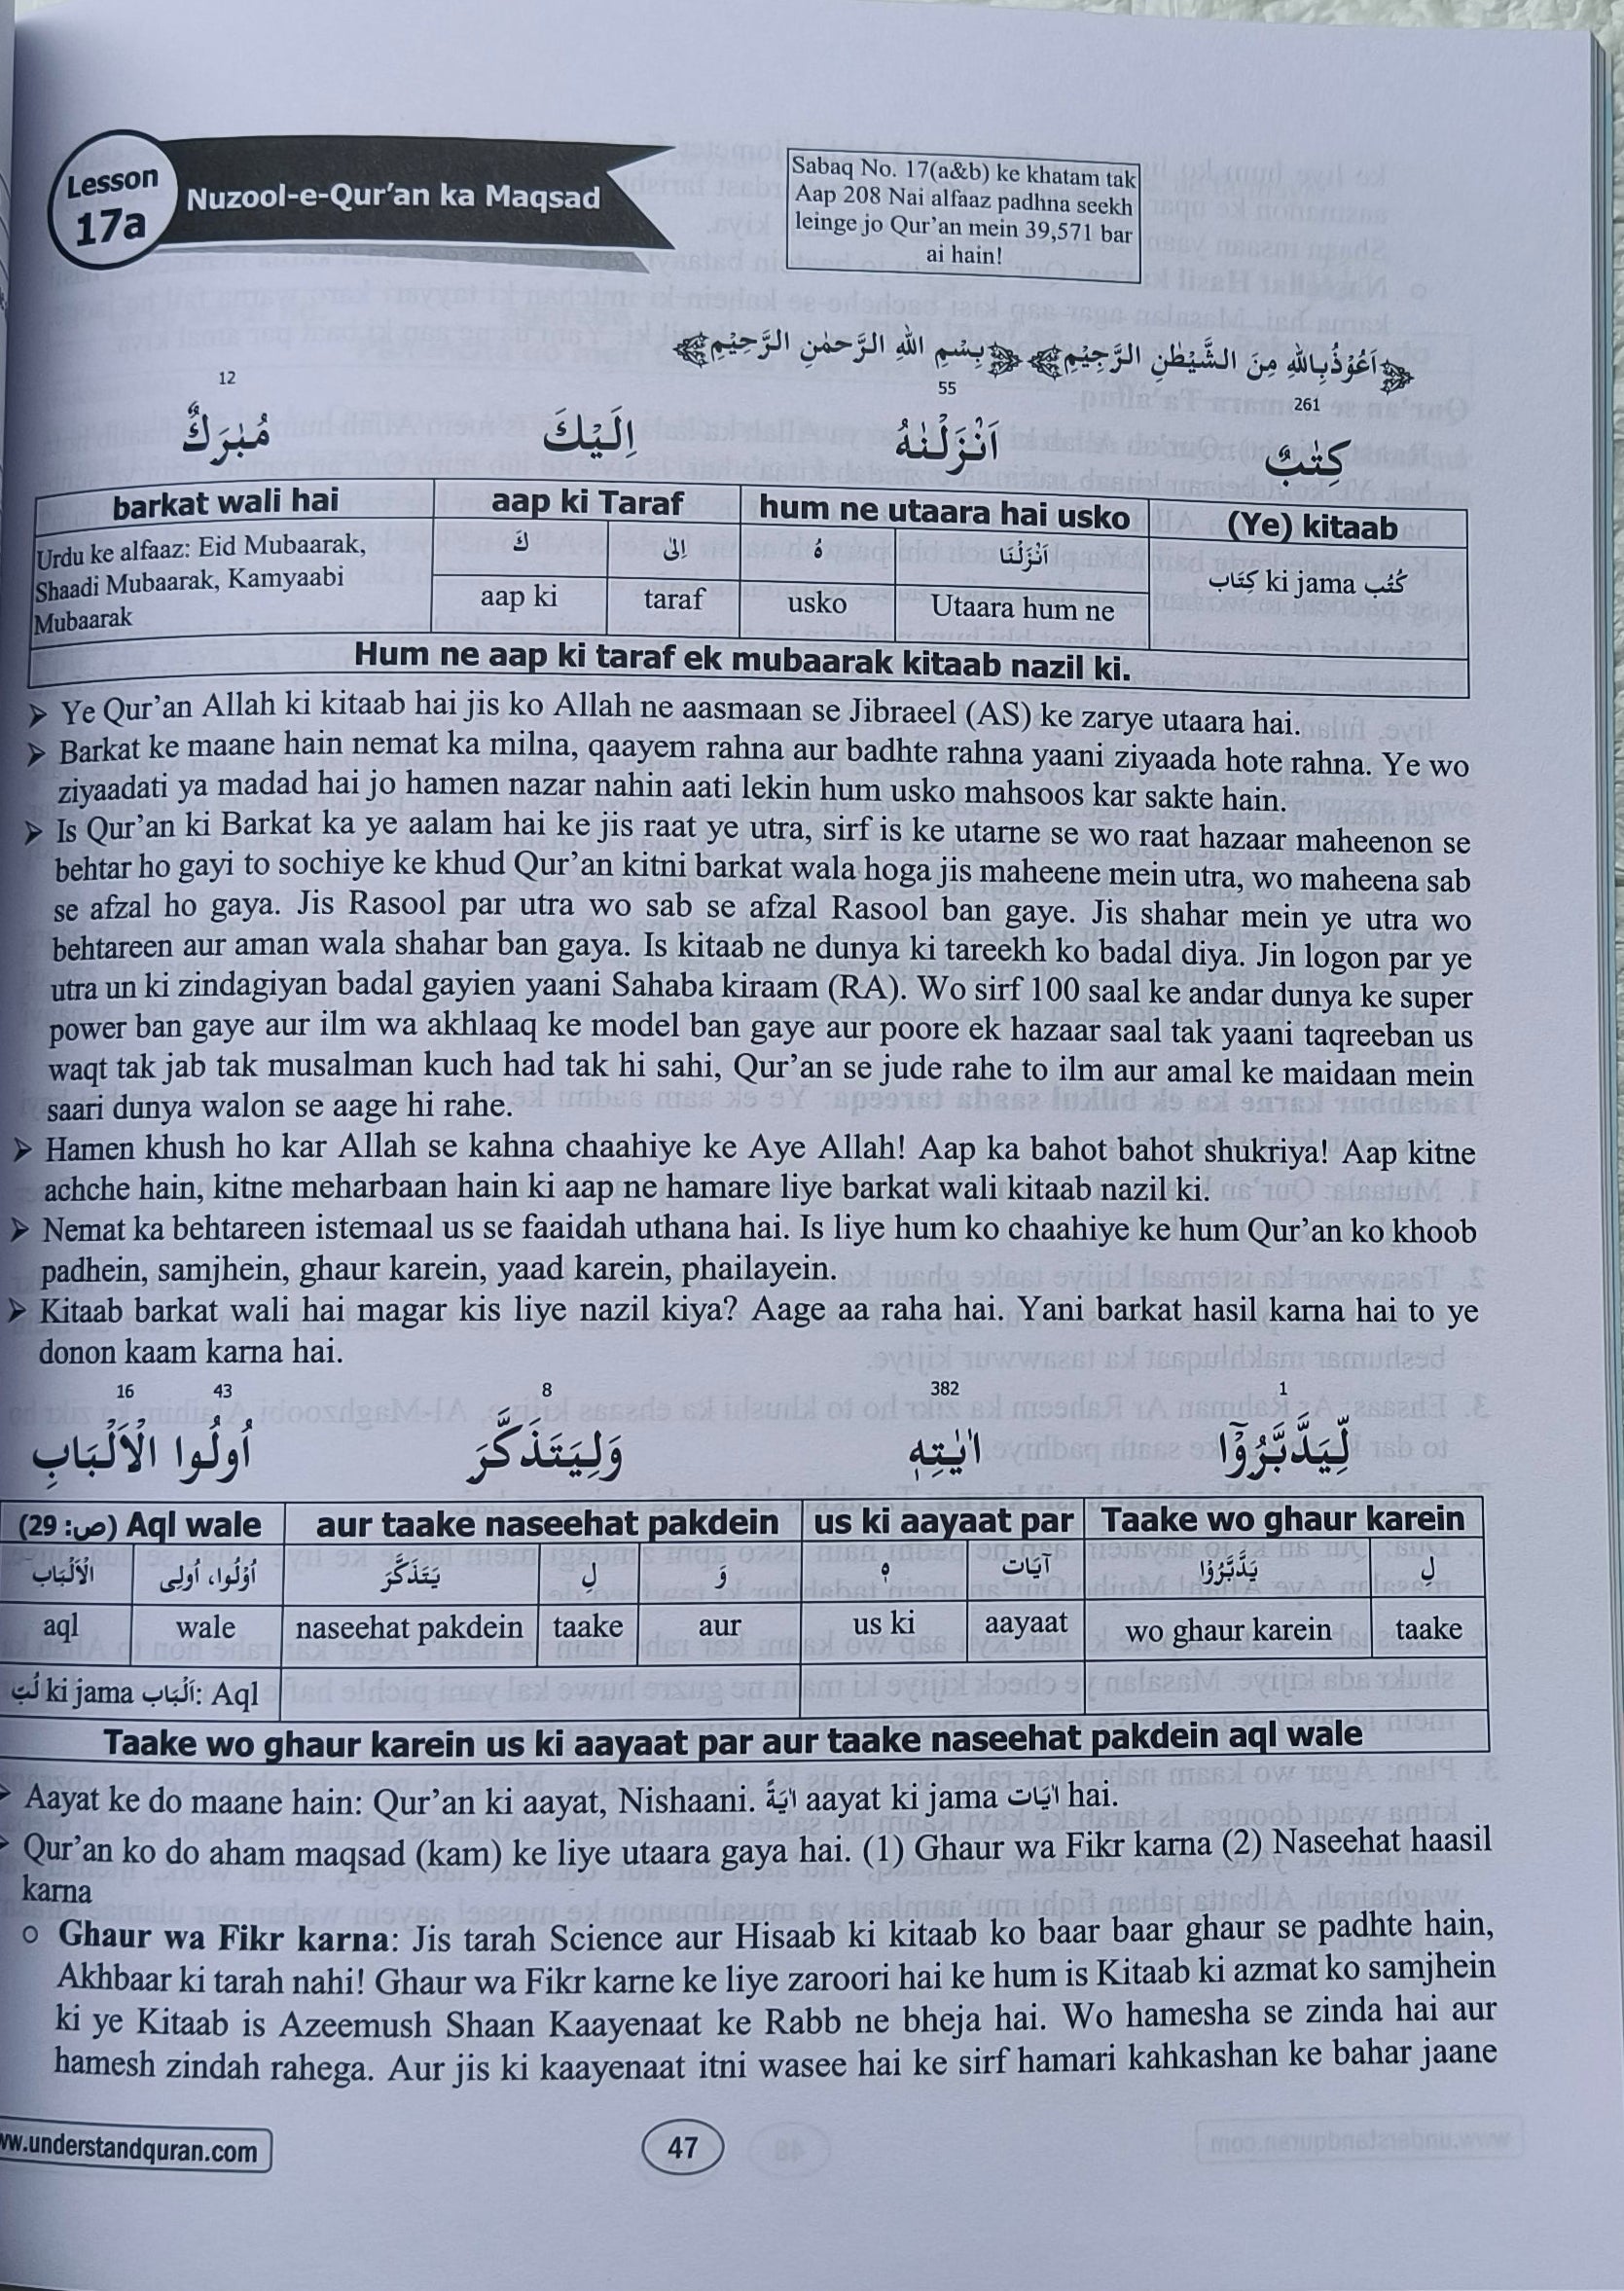 Lesson
17a
Nuzool-e-Qur'an ka Maqsad
Sabaq No. 17(a&b) ke khatam tak
Aap 208 Nai alfaaz padhna seekh
leinge jo Qur'an mein 39,571 bar
ai hain!
اَعُوْذُ بِاللّٰهِ مِنَ الشَّيْطٰنِ الرَّجِيْمِ بِسْمِ اللّٰهِ الرَّحْمٰنِ الرَّحِيْمِ
261 55 12
كِتٰبٌ اَنْزَلْنٰهُ اِلَيْكَ مُبٰرَكٌ
barkat wali hai | aap ki Taraf | hum ne utaara hai usko | (Ye) kitaab
Urdu ke alfaaz: Eid Mubaarak, | كَ | اِلىٰ | هُ | اَنْزَلْنَا | كِتَاب ki jama كُتُب
Shaadi Mubaarak, Kamyaabi | aap ki | taraf | usko | Utaara hum ne
Mubaarak
Hum ne aap ki taraf ek mubaarak kitaab nazil ki.
➢ Ye Qur'an Allah ki kitaab hai jis ko Allah ne aasmaan se Jibraeel (AS) ke zarye utaara hai.
➢ Barkat ke maane hain nemat ka milna, qaayem rahna aur badhte rahna yaani ziyaada hote rahna. Ye wo
ziyaadati ya madad hai jo hamen nazar nahin aati lekin hum usko mahsoos kar sakte hain.
➢ Is Qur'an ki Barkat ka ye aalam hai ke jis raat ye utra, sirf is ke utarne se wo raat hazaar maheenon se
behtar ho gayi to sochiye ke khud Qur'an kitni barkat wala hoga jis maheene mein utra, wo maheena sab
se afzal ho gaya. Jis Rasool par utra wo sab se afzal Rasool ban gaye. Jis shahar mein ye utra wo
behtareen aur aman wala shahar ban gaya. Is kitaab ne dunya ki tareekh ko badal diya. Jin logon par ye
utra un ki zindagiyan badal gayien yaani Sahaba kiraam (RA). Wo sirf 100 saal ke andar dunya ke super
power ban gaye aur ilm wa akhlaaq ke model ban gaye aur poore ek hazaar saal tak yaani taqreeban us
waqt tak jab tak musalman kuch had tak hi sahi, Qur'an se jude rahe to ilm aur amal ke maidaan mein
saari dunya walon se aage hi rahe.
➢ Hamen khush ho kar Allah se kahna chaahiye ke Aye Allah! Aap ka bahot bahot shukriya! Aap kitne
achche hain, kitne meharbaan hain ki aap ne hamare liye barkat wali kitaab nazil ki.
➢ Nemat ka behtareen istemaal us se faaidah uthana hai. Is liye hum ko chaahiye ke hum Qur'an ko khoob
padhein, samjhein, ghaur karein, yaad karein, phailayein.
➢ Kitaab barkat wali hai magar kis liye nazil kiya? Aage aa raha hai. Yani barkat hasil karna hai to ye
donon kaam karna hai.
1 382 8 43 16
لِّيَدَّبَّرُوْٓا اٰيٰتِهٖ وَلِيَتَذَكَّرَ اُولُوا الْاَلْبَابِ
(ص: 29) Aql wale | aur taake naseehat pakdein | us ki aayaat par | Taake wo ghaur karein
الْاَلْبَاب | اُوْلُوا، اُولِى | يَتَذَكَّرَ | لِ | وَ | هٖ | آيَات | يَدَّبَّرُوْا | لِ
aql | wale | naseehat pakdein | taake | aur | us ki | aayaat | wo ghaur karein | taake
لُبّ ki jama اَلْبَاب: Aql
Taake wo ghaur karein us ki aayaat par aur taake naseehat pakdein aql wale
➢ Aayat ke do maane hain: Qur'an ki aayat, Nishaani. اٰيَةٌ aayat ki jama اٰيَات hai.
➢ Qur'an ko do aham maqsad (kam) ke liye utaara gaya hai. (1) Ghaur wa Fikr karna (2) Naseehat haasil
karna
o Ghaur wa Fikr karna: Jis tarah Science aur Hisaab ki kitaab ko baar baar ghaur se padhte hain,
Akhbaar ki tarah nahi! Ghaur wa Fikr karne ke liye zaroori hai ke hum is Kitaab ki azmat ko samjhein
ki ye Kitaab is Azeemush Shaan Kaayenaat ke Rabb ne bheja hai. Wo hamesha se zinda hai aur
hamesh zindah rahega. Aur jis ki kaayenaat itni wasee hai ke sirf hamari kahkashan ke bahar jaane
ww.understandquran.com
47